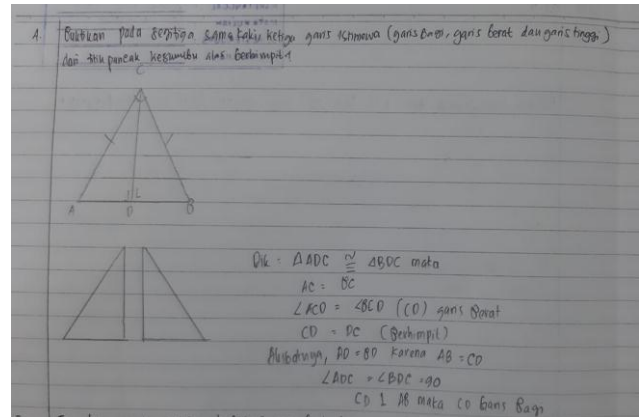 1. Buktikan pada segitiga sama kaki, ketiga garis istimewa (garis bagi, garis berat dan garis tinggi)
dari titik puncak kesumbu alas berhimpit
C
A D B
Dik = ΔADC ≅ ΔBDC maka
AC = BC
∠ACD = ∠BCD (CD) garis Berat
CD = DC (Berhimpit)
Akibatnya, AD = BD Karena AB = CD
∠ADC = ∠BDC = 90
CD ⊥ AB maka CD Garis Bagi